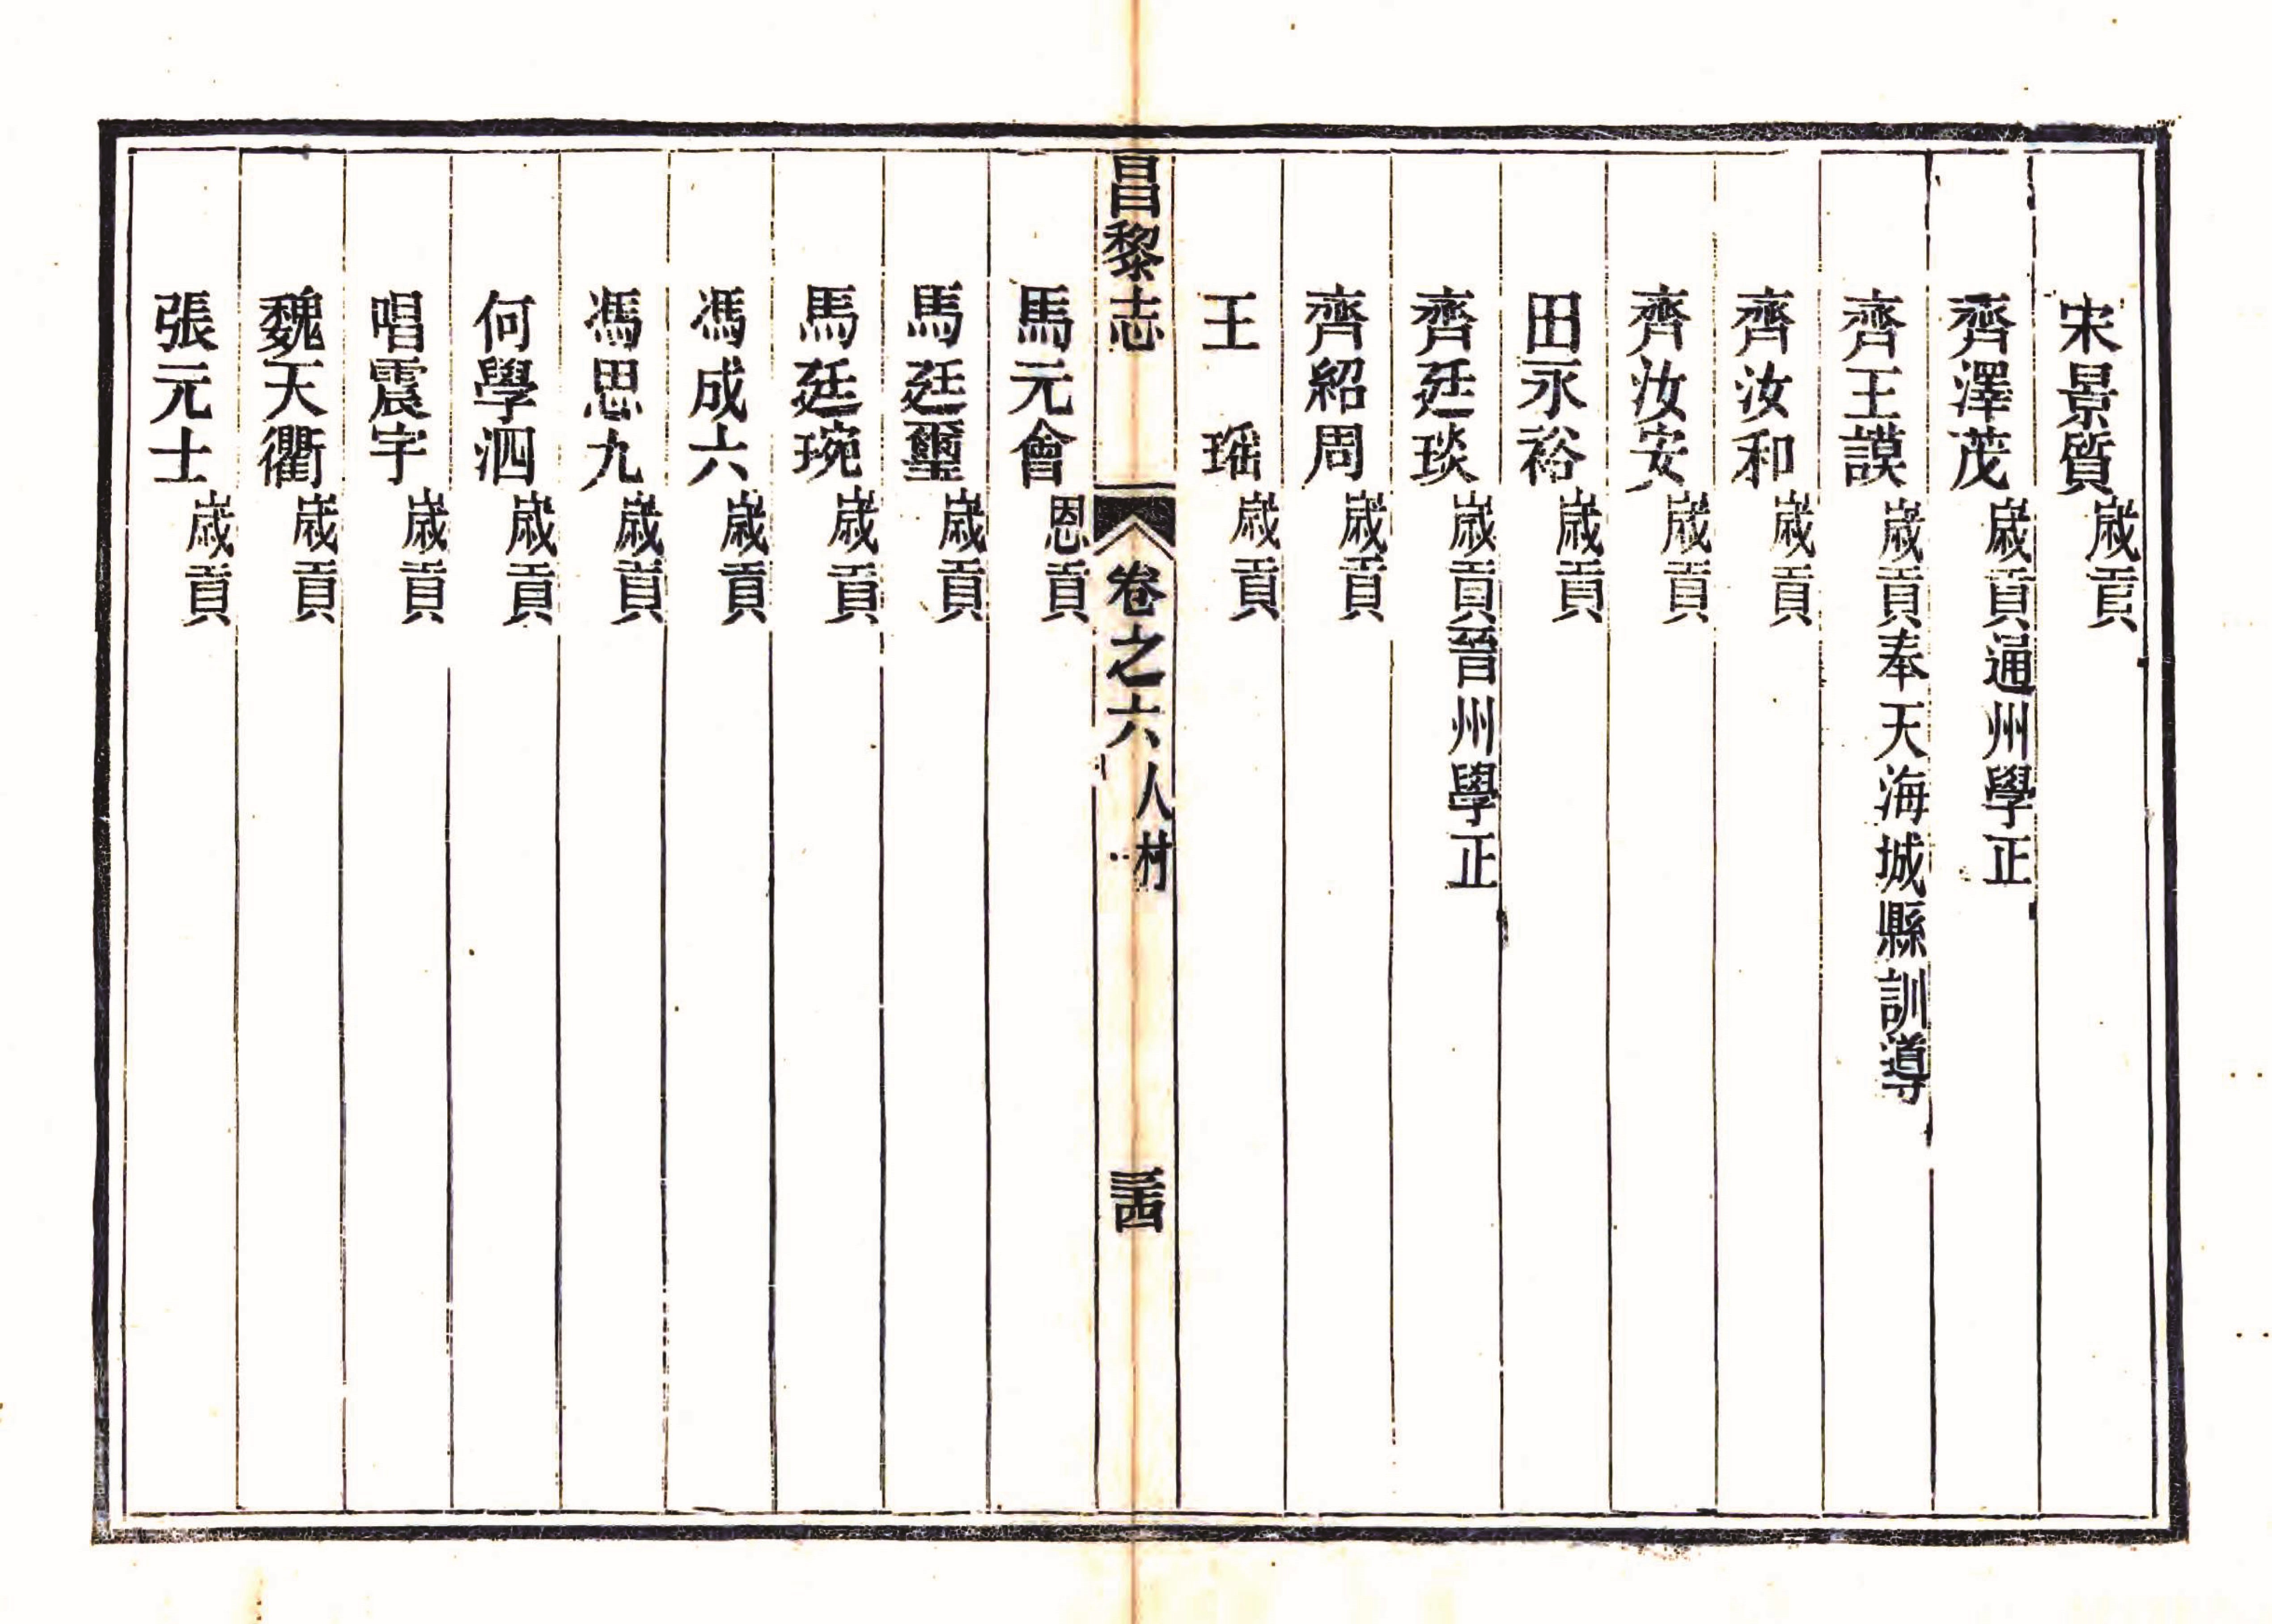 宋景質歲貢
齊澤茂歲貢通州學正
齊王謨歲貢奉天海城縣訓導
齊汝和歲貢
齊汝安歲貢
田永裕歲貢
齊廷琰歲貢晉州學正
齊紹周歲貢
王瑶歲貢
昌黎志 卷之六 人材 三十四
馬元會恩貢
馬廷璽歲貢
馬廷琬歲貢
馮成六歲貢
馮思九歲貢
何學泗歲貢
唱震宇歲貢
魏天衢歲貢
張元士歲貢